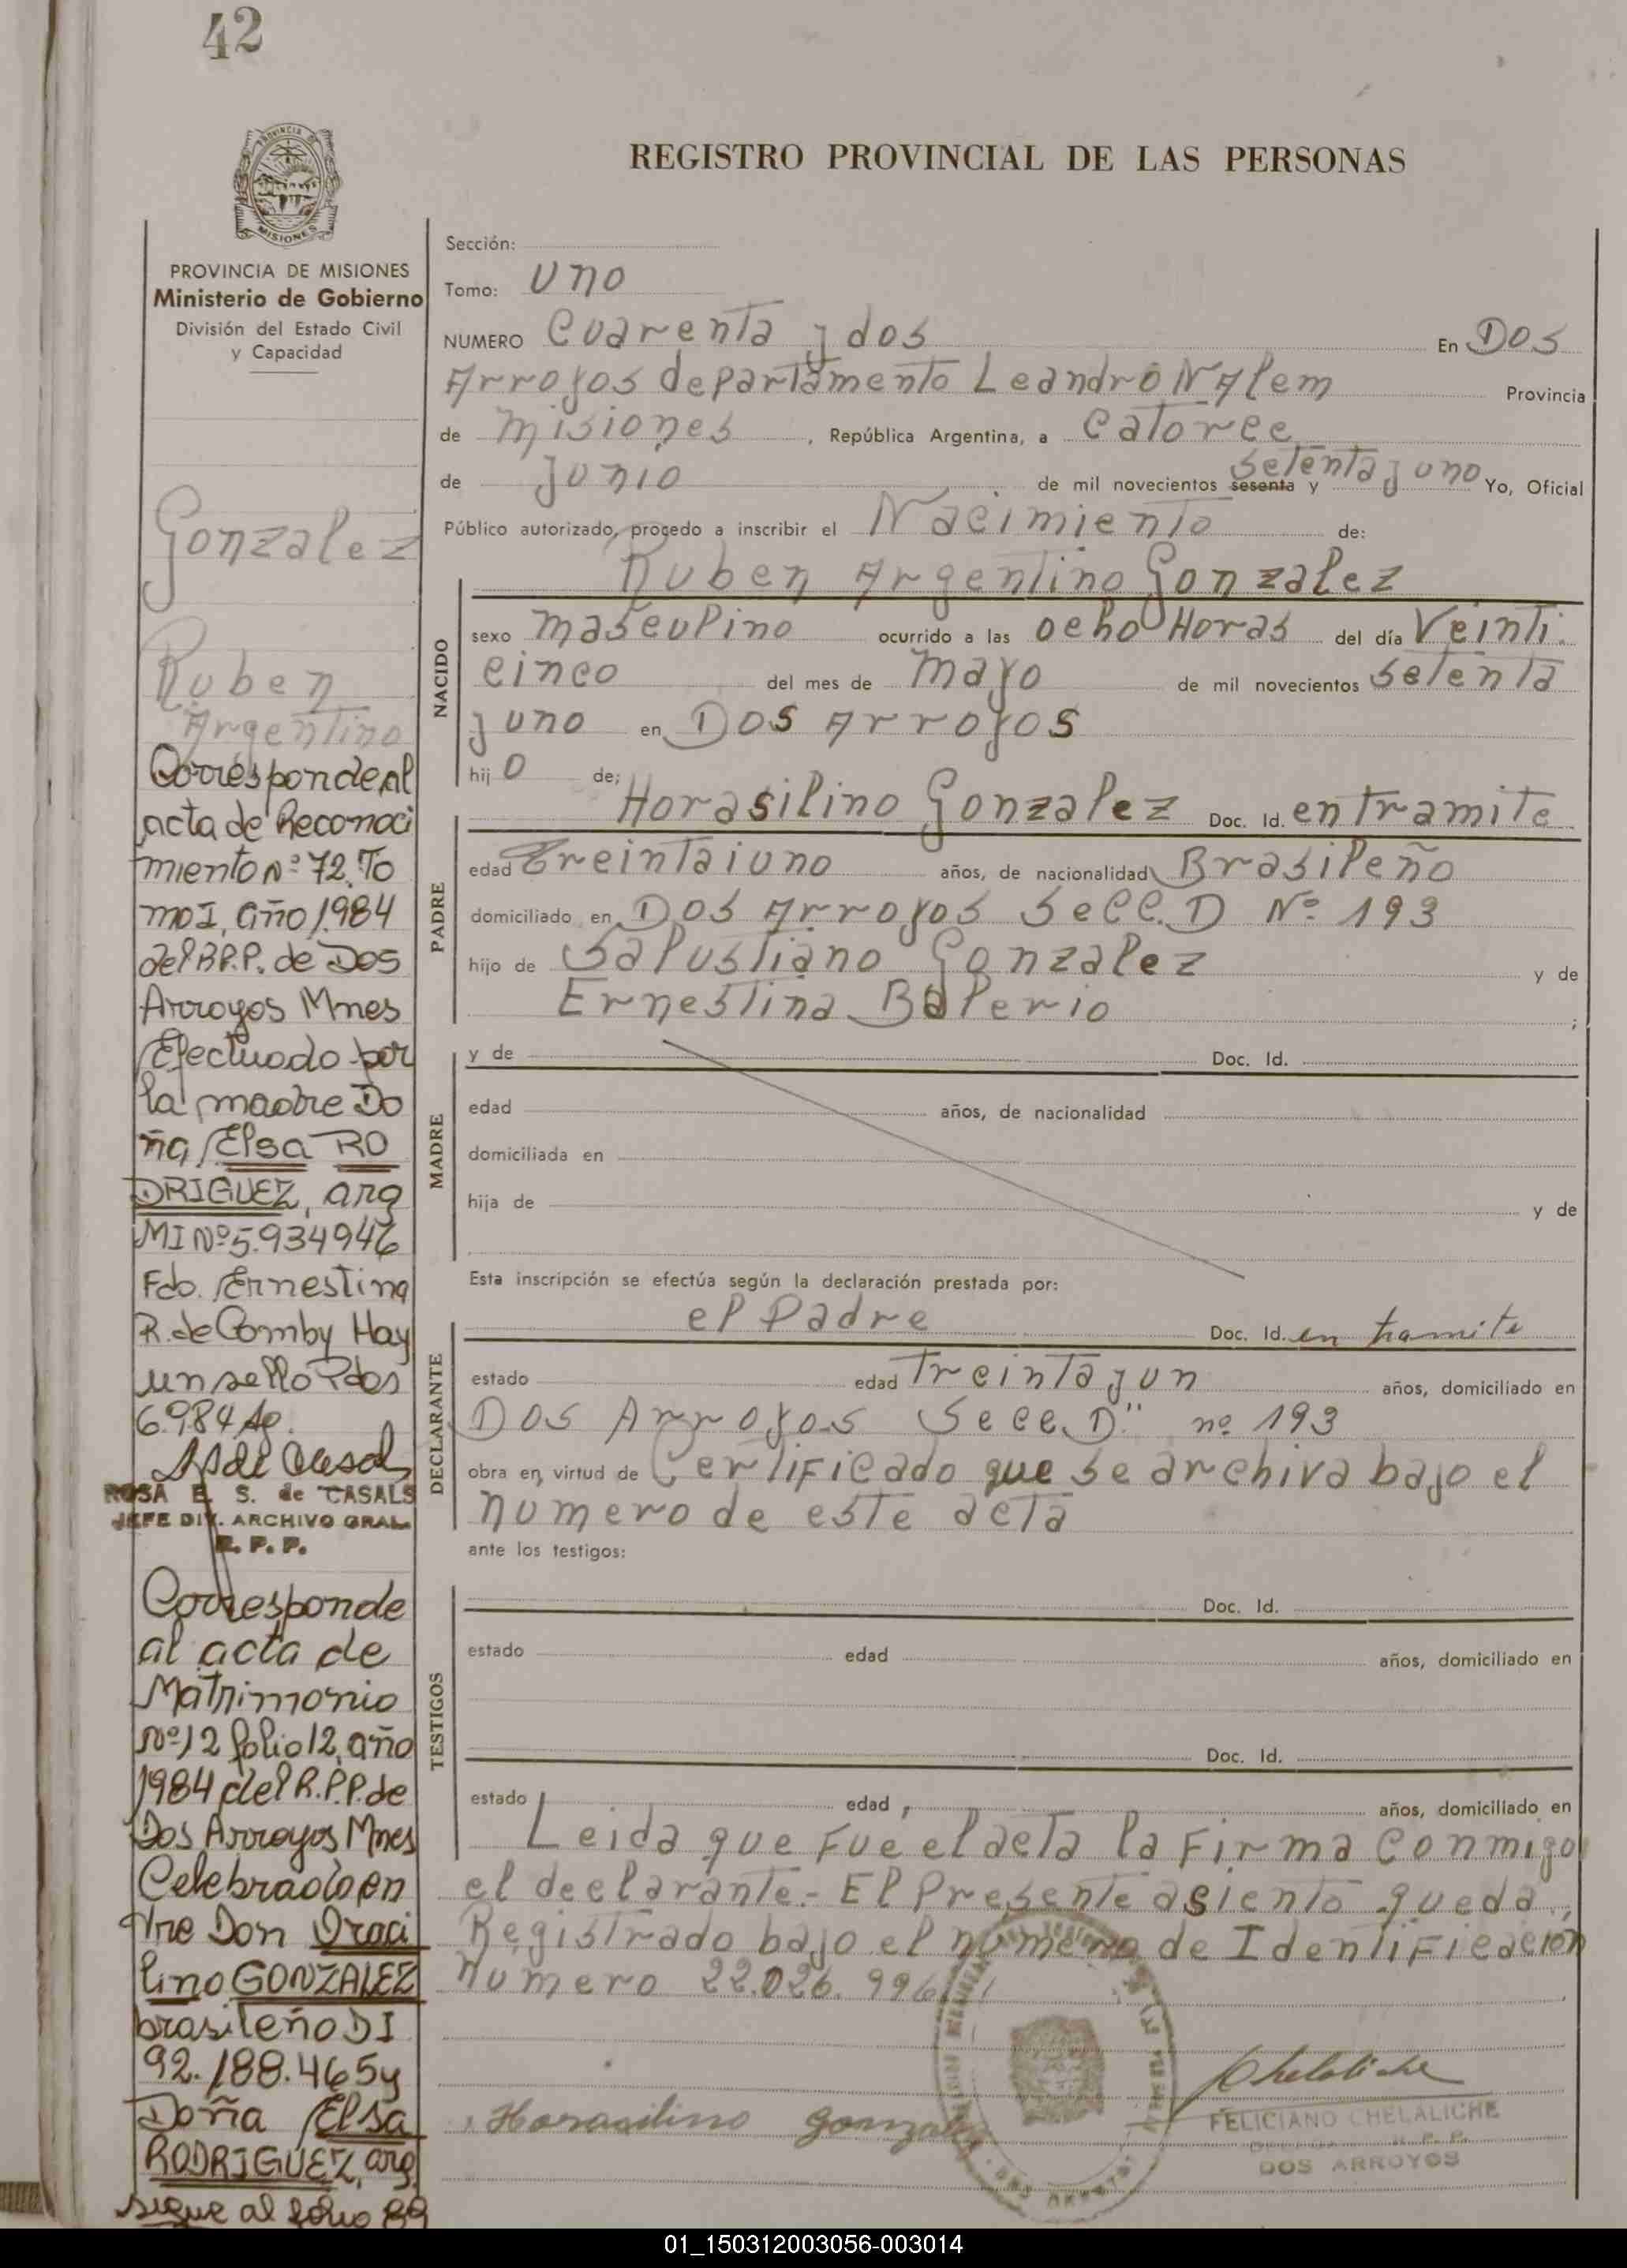 42
REGISTRO PROVINCIAL DE LAS PERSONAS
PROVINCIA DE MISIONES
Ministerio de Gobierno
División del Estado Civil
y Capacidad
Gonzalez
Ruben
Argentino
Corresponde al
acta de Reconoci
miento Nº 72, To
mo I, año 1984
del R.P.P. de Dos
Arroyos Mnes
Efectuado por
la madre Do
ña Elsa RO
DRIGUEZ, arg
MI Nº 5.934946
Fdo. Ernestina
R. de Comby Hay
un sello Pdos
6984
ROSA E. S. de CASALS
JEFE DIV. ARCHIVO GRAL.
R. P. P.
Corresponde
al acta de
Matrimonio
Nº 12 folio 12, año
1984 del R.P.P. de
Dos Arroyos Mnes
Celebrado en
tre Don Oraci
lino GONZALEZ
brasileño DI
92.188.465 y
Doña Elsa
RODRIGUEZ, arg.
sigue al folio 89
Sección:
Tomo: uno
NUMERO Cuarenta y dos En Dos
Arroyos departamento Leandro N Alem Provincia
de Misiones, República Argentina, a Catorce
de junio de mil novecientos sesenta y setenta y uno Yo, Oficial
Público autorizado, procedo a inscribir el Nacimiento de:
Ruben Argentino Gonzalez
NACIDO
sexo masculino ocurrido a las ocho Horas del día Veinti
cinco del mes de mayo de mil novecientos setenta
y uno en Dos Arroyos
hijo de:
PADRE
Horasilino Gonzalez Doc. Id. en tramite
edad treintaiuno años, de nacionalidad Brasileño
domiciliado en Dos Arroyos Secc. D Nº 193
hijo de Salustiano Gonzalez y de
Ernestina Balerio ;
MADRE
y de Doc. Id.
edad años, de nacionalidad
domiciliada en
hija de y de
Esta inscripción se efectúa según la declaración prestada por:
DECLARANTE
el Padre Doc. Id. en tramite
estado edad Treinta y un años, domiciliado en
Dos Arroyos Secc. D" nº 193
obra en virtud de Certificado que se archiva bajo el
numero de este acta
ante los testigos:
TESTIGOS
Doc. Id.
estado edad años, domiciliado en
Doc. Id.
estado edad años, domiciliado en
Leida que fue el acta la firma conmigo
el declarante.- El Presente asiento queda
Registrado bajo el numero de Identificación
Numero 22.026.996
Horasilino Gonzalez
Chelaliche
FELICIANO CHELALICHE
R. P. P.
DOS ARROYOS
01_150312003056-003014